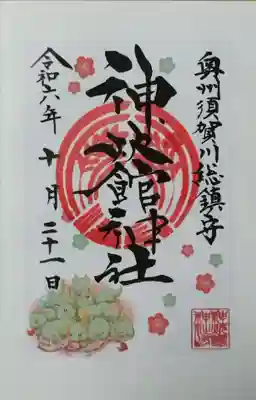 奥州須賀川総鎮守
神炊館神社
令和六年十月二十一日